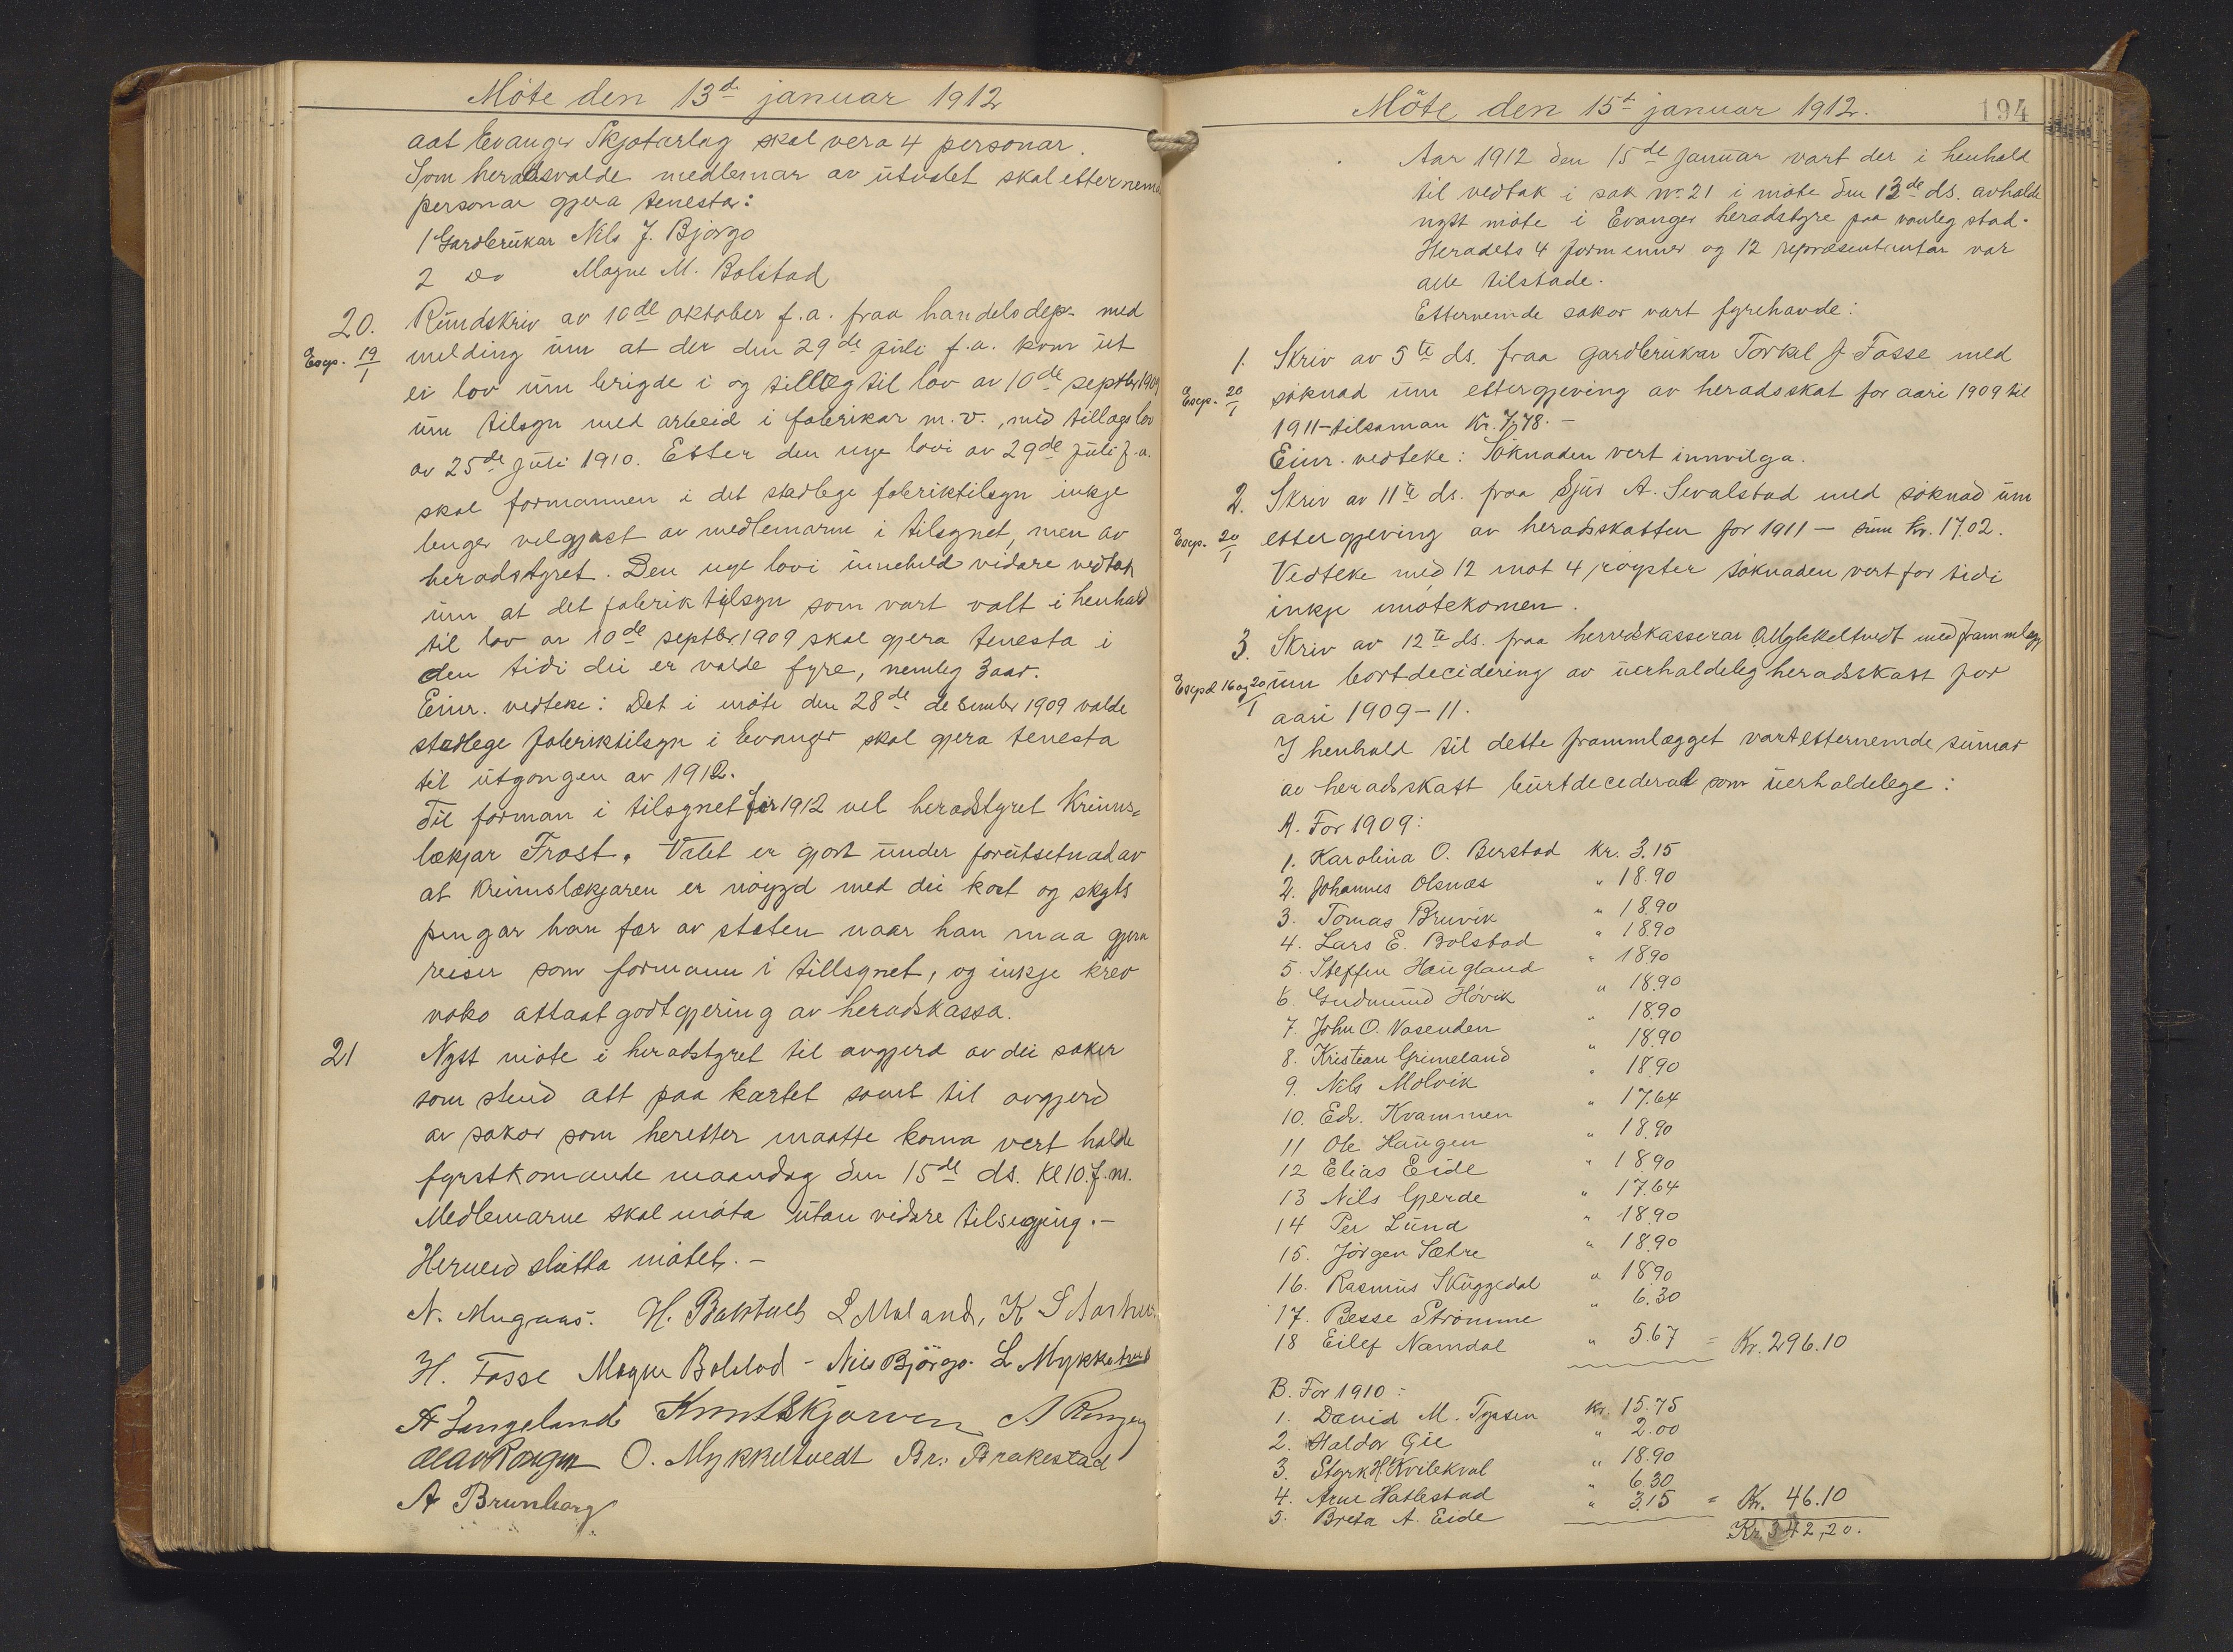 Möte den 13de januar 1912
aat Evanger Skjotarlag skal vera 4 personar.
Som heradsvalde medlemar av utvalet skal etternemnde
personar gjera tenesta:
1 Gardbrukar Nils J. Bjørgo
2 Do Magne M. Bolstad
20. Rundskriv av 10de oktober f.a. fraa handelsdep. med
Exp. 19/1 melding um at der den 29de juli f.a. kom ut
ei lov um brigde i og tillæg til lov av 10de septbr 1909
um tilsyn med arbeid i fabrikar m.v., med tillagslov
av 25de juli 1910. Etter den nye lovi av 29de juli f.a.
skal formannen i det stadlege fabriktilsyn inkje
lenger velgjast av medlemarne i tilsynet, men av
heradstyret. Den nye lovi inneheld vidare vedtak
um at det fabriktilsyn som vart valt i henhald
til lov av 10de septbr 1909 skal gjera tenesta i
den tidi dei er valde fyre, nemleg 3 aar.
Einr. vedteke: Det i møte den 28de desember 1909 valde
stadlege fabriktilsyn i Evanger skal gjera tenesta
til utgongen av 1912.
Til forman i tilsynet for 1912 vel heradstyret Kriins-
lækjar Frost. Valet er gjort under forutsetnad av
at Kriinslækjaren er nøygd med dei kost og skyts
pengar han fær av staten naar han maa gjera
reiser som formann i tillsynet, og inkje krev
noko attaat godtgjering av heradskassa.
21 Nytt møte i heradstyret til avgjerd av dei saker
som stend att paa kartet samt til avgjerd
av sakor som heretter maatte koma vert halde
fyrstkomande maandag den 15de ds. Kl 10. f.m.
Medlemarne skal møta utan vidare tilsegjing.-
Herved slutta møtet.-
N. Mugaas. H. Baktveit L Maland, K S Aarhus
H. Fosse Magne Bolstad - Nils Björgo. L Mykkeltvedt
A Langeland Knut Skjerven A Rongen
Olav Rongen O. Mykkeltvedt Br. Brakestad
A Brunborg
Möte den 15de januar 1912. 194
Aar 1912 den 15de januar vart der i henhald
til vedtak i sak nr. 21 i møte den 13de ds. avhalde
nytt møte i Evanger heradstyre paa vanleg stad.
Heradets 4 formenner og 12 repræsentantar var
alle tilstade.
Etternemde sakor vart fyrehavde:
1. Skriv av 5te ds. fraa gardbrukar Torkel J Fosse med
Exp. 20/1 søknad um ettergjeving av heradsskat for aari 1909 til
1911 - tilsaman Kr. 7,78.-
Einr. vedteke: Søknaden vert innvilga.
2. Skriv av 11te ds. fraa Sjur A. Sevalstad med søknad um
Exp. 20/1 ettergjeving av heradsskatten for 1911 - sum Kr. 17.02.
Vedteke med 12 mot 4 røyster søknaden vert for tidi
inkje imøtekomen.
3. Skriv av 12te ds. fraa herredskasserar O. Mykkeltvedt med frammlegg
Expd 16 og 20/1 um bortdecidering av uerhaldeleg heradskatt for
aari 1909-11.
I henhald til dette frammlægget vart etternemde sumar
av heradsskatt burtdecederat som uerhaldelege:
A. For 1909:
1. Karolina O. Berstad kr. 3.15
2. Johannes Olsnæs " 18.90
3. Tomas Bruvik " 18.90
4. Lars E. Bolstad " 18.90
5. Steffen Haugland " 18.90
6. Gudmund Høvik " 18.90
7. John O. Vasenden " 18.90
8. Kristian Grimeland " 18.90
9. Nils Molvik " 18.90
10. Edv. Kvammen " 17.64
11 Ole Haugen " 18.90
12 Elias Eide " 18.90
13 Nils Gjerde " 17.64
14 Per Lund " 18.90
15. Jörgen Sætre " 18.90
16. Rasmus Skuggedal " 18.90
17. Besse Strømme " 6.30
18 Eilef Namdal " 5.67 = Kr. 296.10
B. For 1910:
1. David M. Tyssen kr. 15.75
2. Haldor Gie " 2.00
3. Styrk H. Kvilekval " 18.90
4. Arne Hatlestad " 6.30
5. Breta A. Eide " 3.15 = Kr. 46.10
Kr. 342,20.